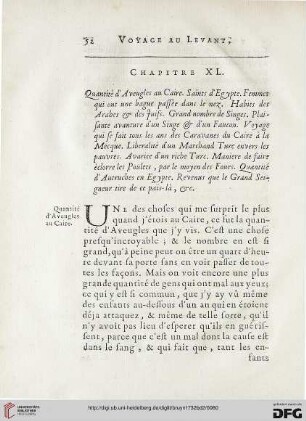 32 VOYAGE AU LEVANT,
CHAPITRE XL.
Quantité d'Aveugles au Caire. Saints d'Egypte. Femmes
qui ont une bague passée dans le nez. Habits des
Arabes & des Juifs. Grand nombre de Singes. Plai-
sante avanture d'un Singe & d'un Faucon. Voyage
qui se fait tous les ans des Caravanes du Caire à la
Mecque. Liberalité d'un Marchand Turc envers les
pauvres. Avarice d'un riche Turc. Maniere de faire
éclorre les Poulets, par le moyen des Fours. Quantité
d'Autruches en Egypte. Revenus que le Grand Sei-
gneur tire de ce païs-là, &c.
Quantité
d'Aveugles
au Caire.
UNE des choses qui me surprit le plus
quand j'étois au Caire, ce fut la quan-
tité d'Aveugles que j'y vis. C'est une chose
presqu'incroyable; & le nombre en est si
grand, qu'à peine peut on être un quart d'heu-
re devant sa porte sans en voir passer de tou-
tes les façons. Mais on voit encore une plus
grande quantité de gens qui ont mal aux yeux;
ce qui y est si commun, que j'y ay vû même
des enfants au-dessous d'un an qui en étoient
déja attaquez, & même de telle sorte, qu'il
n'y avoit pas lieu d'esperer qu'ils en guéris-
sent, parce que c'est un mal dont la cause est
dans le sang, & qui fait que, tant les en-
fants
http://digi.ub.uni-heidelberg.de/diglit/
UNIVERSITÄTS-
BIBLIOTHEK
HEIDELBERG
Gefördert durch
DFG